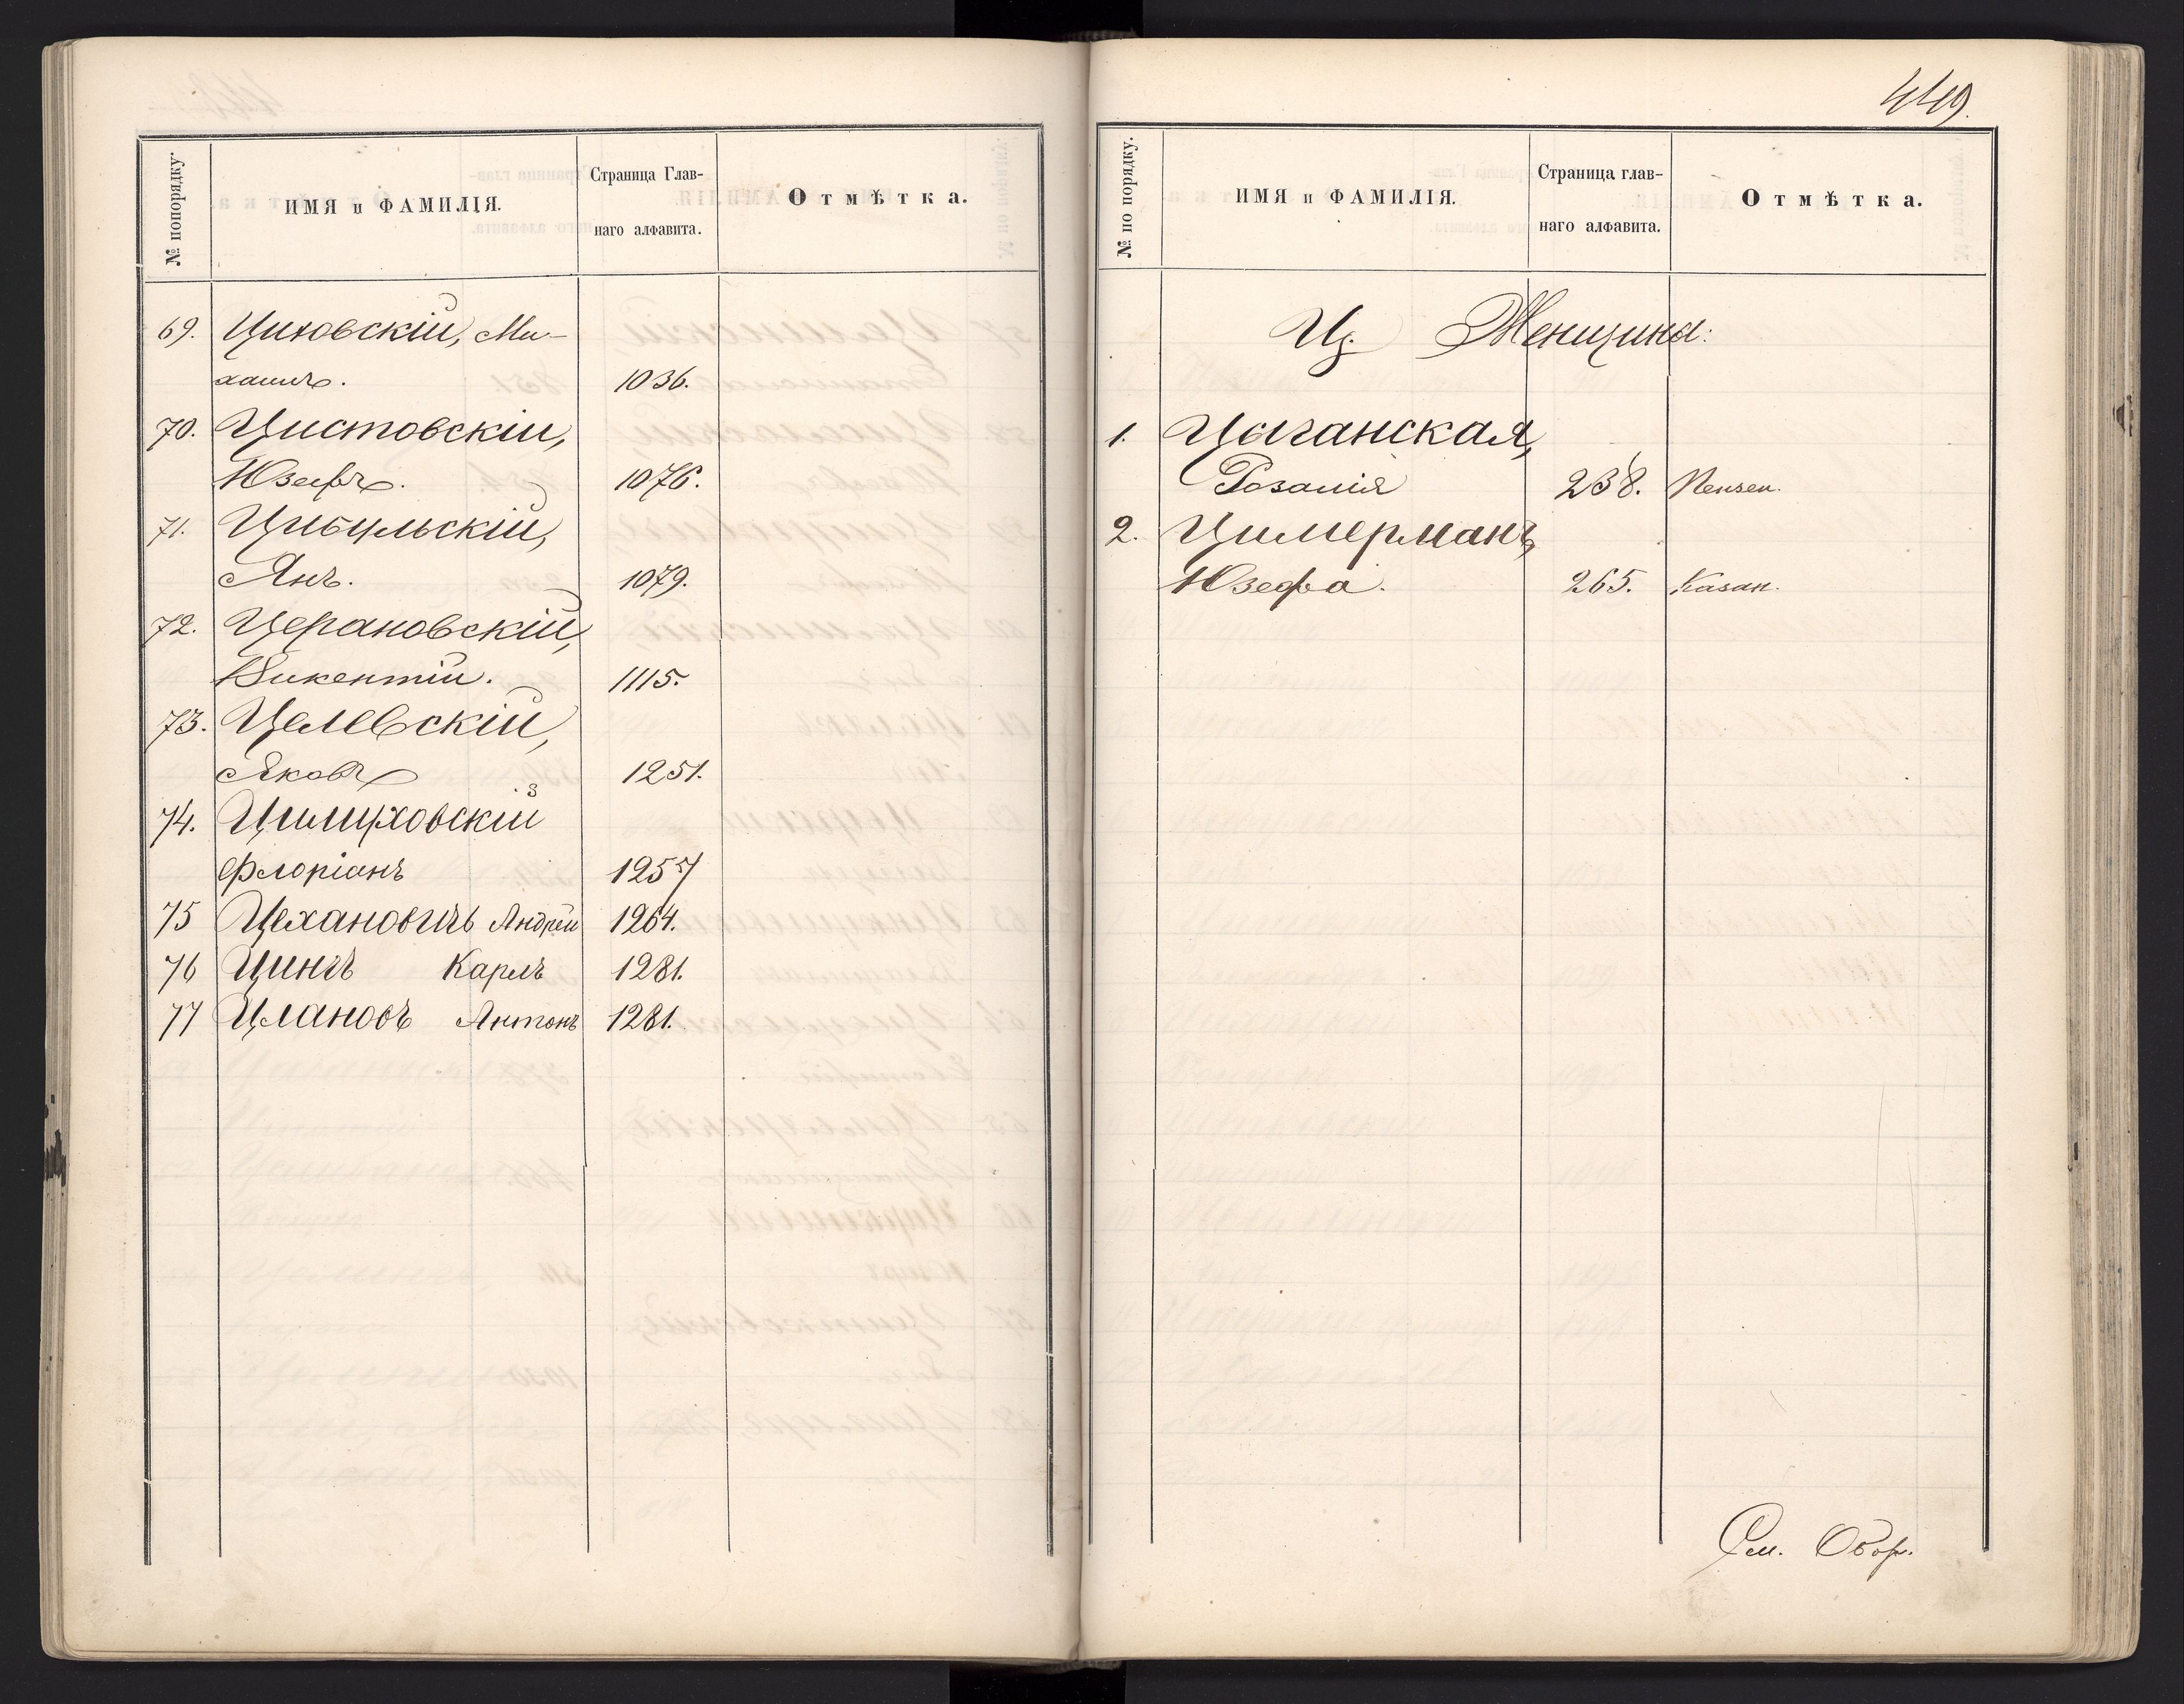 № попорядку.
ИМЯ и ФАМИЛІЯ.
Страница Глав-
наго алфавита.
Отмѣтка.
69. Циховскій, Ми-
хаилъ. 1036.
70. Цистовскій,
Юзефъ. 1076.
71. Цибульскій,
Янъ. 1079.
72. Церановскій,
Викентій. 1115.
73. Целевскій,
Яковъ 1251.
74. Цилиховскій
Флоріанъ 1257
75 Цехановичъ Андрей 1264.
76 Цингъ Карлъ 1281.
77 Улановъ Антонъ 1281.
449.
№ по порядку.
ИМЯ и ФАМИЛІЯ.
Страница глав-
наго алфавита.
Отмѣтка.
Ц. Женщина:
1. Цыганская,
Розалія 238. Пензен.
2. Цимерманъ,
Юзефа. 265. Казан.
См. Обор.